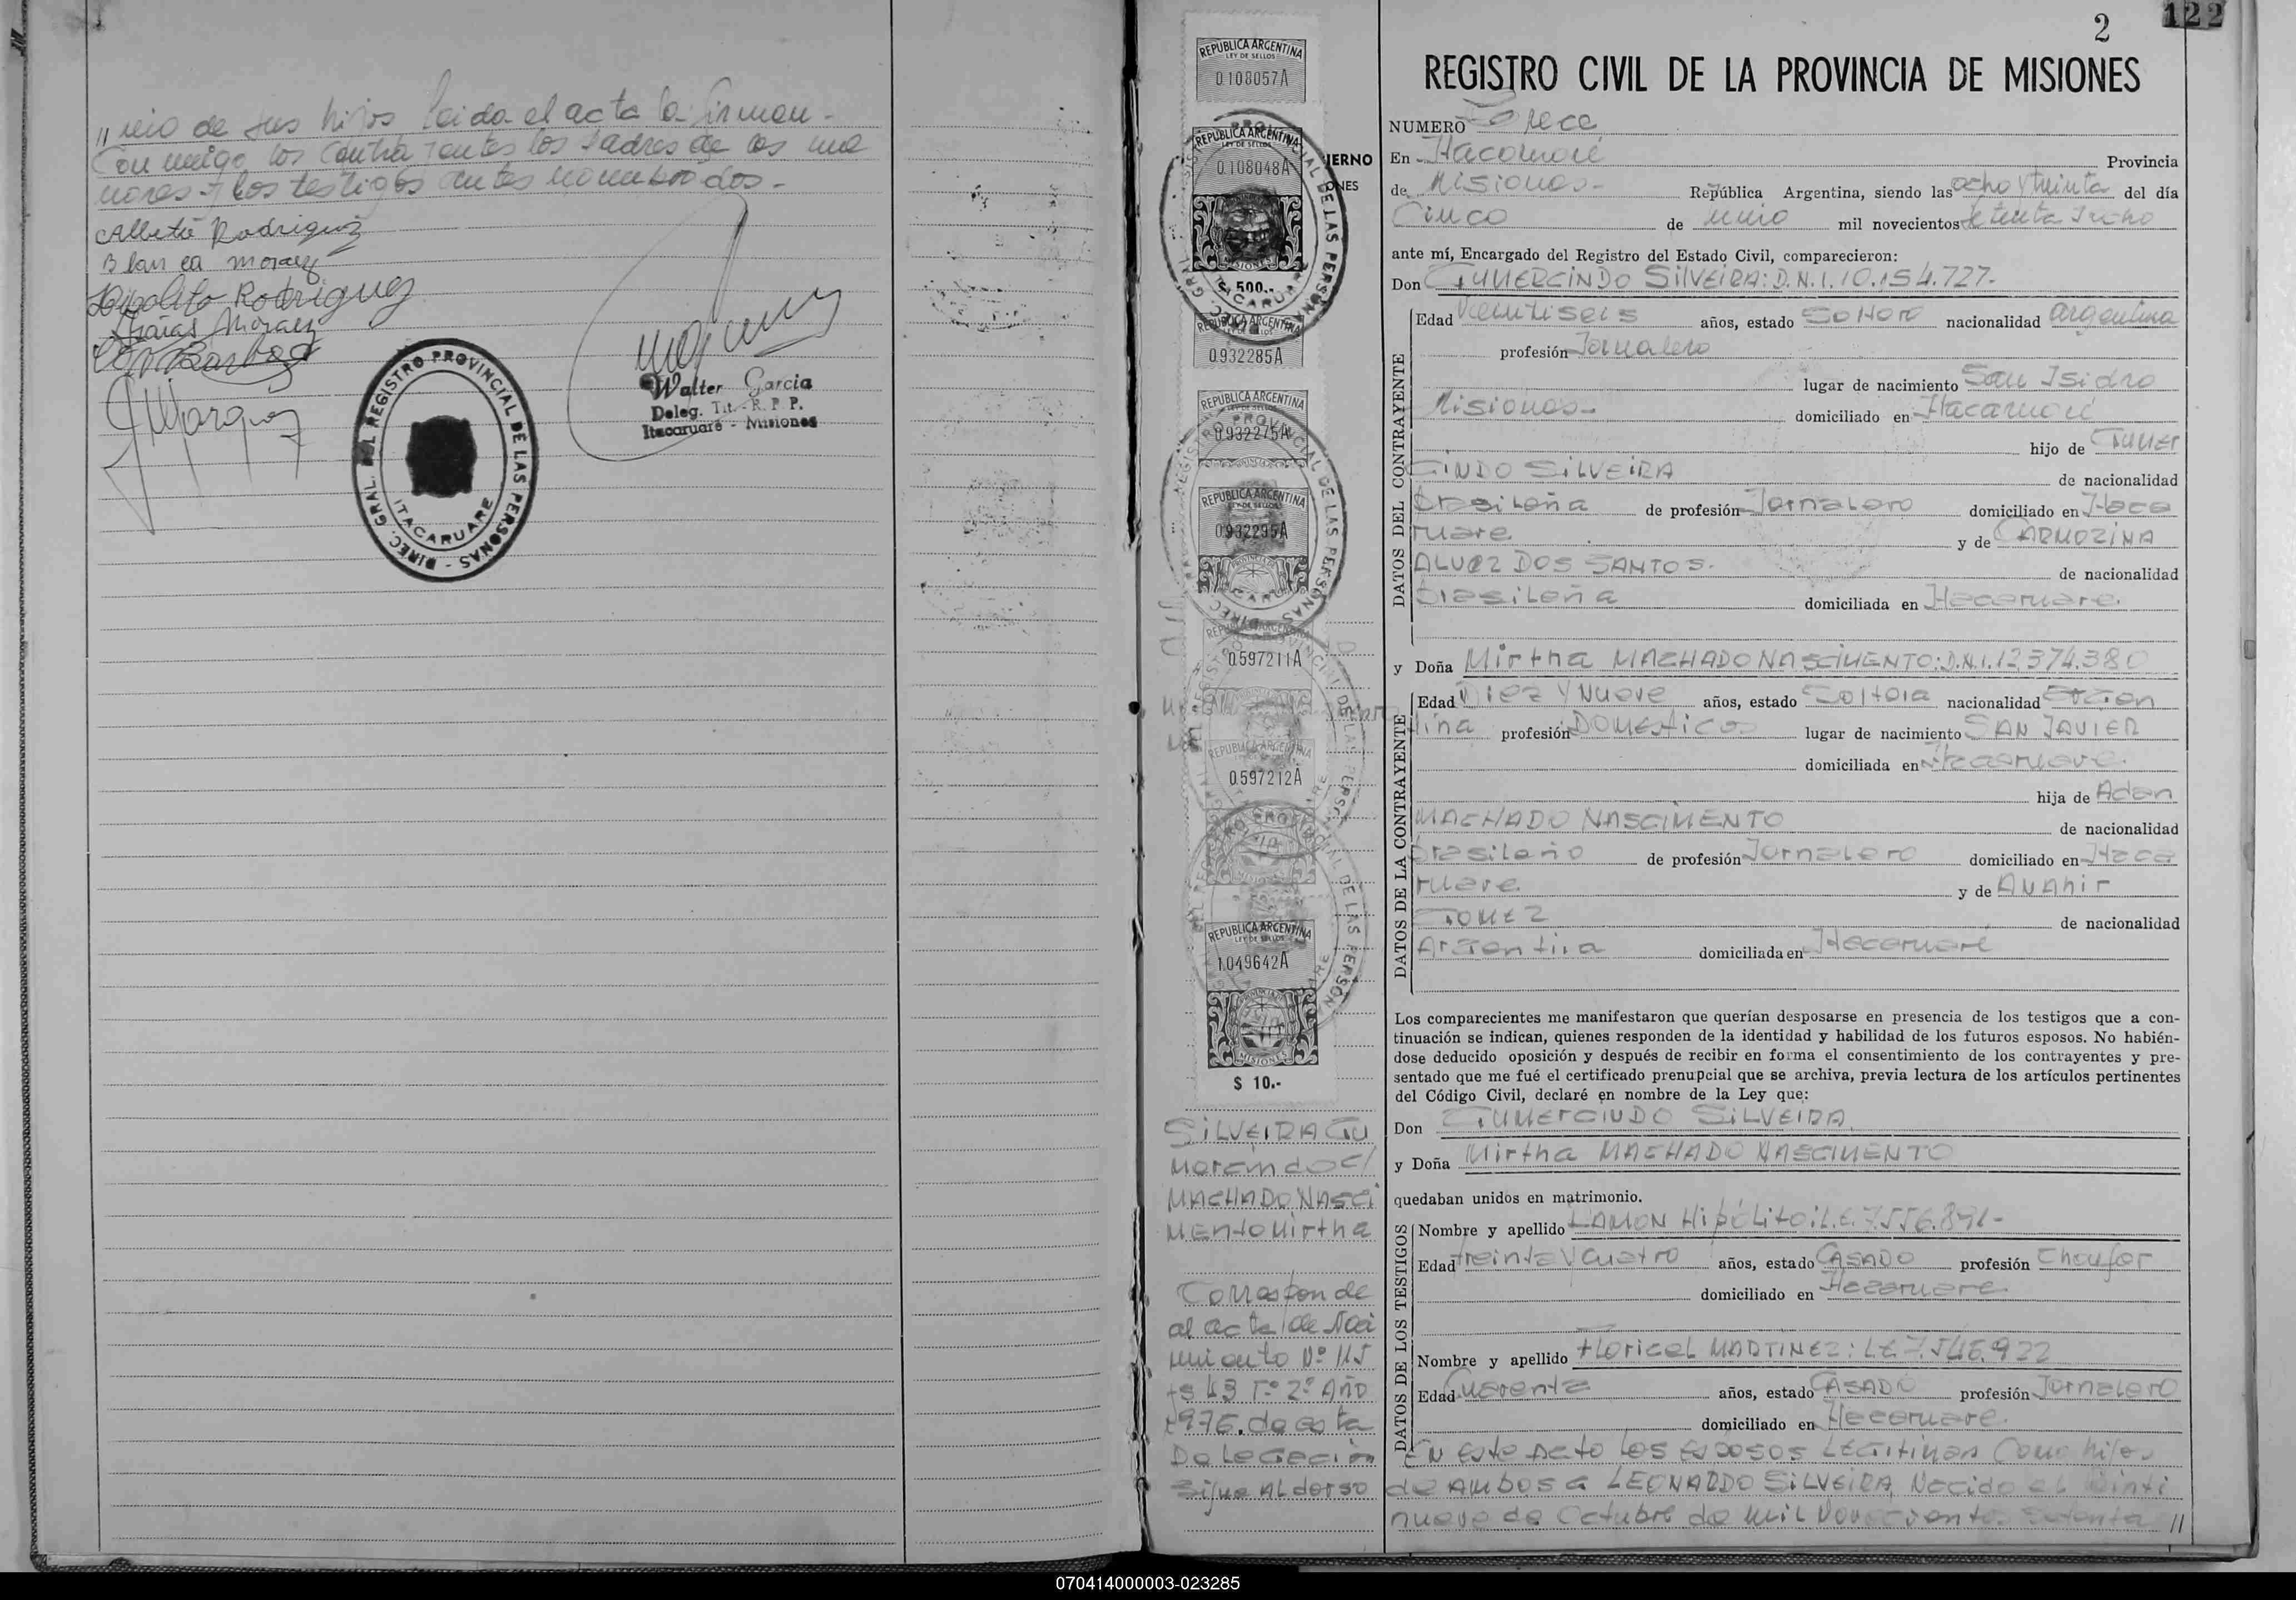 // nio de sus hijos leida el acta la firman -
Conmigo los Contrayentes los Padres de los me
nores y los testigos antes nombrados -
Alberto Rodriguez
Blanca moraez
Hipolito Rodriguez
Isaias Moraez
J Marquez
DIREC. GRAL. DEL REGISTRO PROVINCIAL DE LAS PERSONAS - ITACARUARE
Walter Garcia
Deleg. Tit. - R. P. P.
Itacaruaré - Misiones
REPUBLICA ARGENTINA
LEY DE SELLOS
0.108057A
REPUBLICA ARGENTINA
LEY DE SELLOS
0.108048A
MISIONES
$ 500.-
REPUBLICA ARGENTINA
0.932285A
REPUBLICA ARGENTINA
LEY DE SELLOS
0.932275A
REPUBLICA ARGENTINA
LEY DE SELLOS
0.932295A
REPUBLICA ARGENTINA
0.597211A
REPUBLICA ARGENTINA
0.597212A
REPUBLICA ARGENTINA
LEY DE SELLOS
1.049642A
MISIONES
$ 10.-
IERNO
ONES
SILVEIRA GU
mercindo c/
MACHADO NASCI
MENTO Mirtha
Corresponde
al acta de Naci
miento Nº 115
fs 43 Tº 2º Año
1976. de esta
Delegación
Sigue AL dorso
2
122
REGISTRO CIVIL DE LA PROVINCIA DE MISIONES
NUMERO Trece
En Itacaruaré Provincia
de Misiones - República Argentina, siendo las ocho y treinta del día
Cinco de junio mil novecientos setenta y ocho
ante mí, Encargado del Registro del Estado Civil, comparecieron:
Don GUMERCINDO SILVEIRA: D.N.I. 10.154.727.-
DATOS DEL CONTRAYENTE
Edad Veintiseis años, estado Soltero nacionalidad argentina
profesión Jornalero
lugar de nacimiento San Isidro
Misiones - domiciliado en Itacaruaré
hijo de GUMER
CINDO SILVEIRA de nacionalidad
brasileña de profesión Jornalero domiciliado en Itaca
ruare. y de CARMOZINA
ALVEZ DOS SANTOS. de nacionalidad
brasileña domiciliada en Itacaruare.
y Doña Mirtha MACHADO NASCIMENTO: D.N.I. 12.374.380
DATOS DE LA CONTRAYENTE
Edad Diez y Nueve años, estado Soltera nacionalidad Argen
tina profesión DOMESticos lugar de nacimiento SAN JAVIER
domiciliada en Itacaruare.
hija de Adan
MACHADO NASCIMENTO de nacionalidad
brasileño de profesión Jornalero domiciliado en Itaca
ruare. y de ANAhir
GOMEZ de nacionalidad
Argentina domiciliada en Itacaruaré
Los comparecientes me manifestaron que querían desposarse en presencia de los testigos que a con-
tinuación se indican, quienes responden de la identidad y habilidad de los futuros esposos. No habién-
dose deducido oposición y después de recibir en forma el consentimiento de los contrayentes y pre-
sentado que me fué el certificado prenupcial que se archiva, previa lectura de los artículos pertinentes
del Código Civil, declaré en nombre de la Ley que:
Don GUMERCINDO SILVEIRA.
y Doña Mirtha MACHADO NASCIMENTO
quedaban unidos en matrimonio.
DATOS DE LOS TESTIGOS
Nombre y apellido RAMON Hipólito: L.E. 7.556.891-
Edad treinta y Cuatro años, estado CASADO profesión Choufer
domiciliado en Itacaruare.
Nombre y apellido Floricel MARTINEZ: L.E. 7.546.922
Edad Cuarenta años, estado CASADO profesión Jornalero
domiciliado en Itacaruare.
En este acto los esposos LEGITIMAN Como hijos
de AMBOS a LEONARDO SILVEIRA, Nacido el Veinti
nueve de Octubre de mil Novecientos Setenta //
070414000003-023285